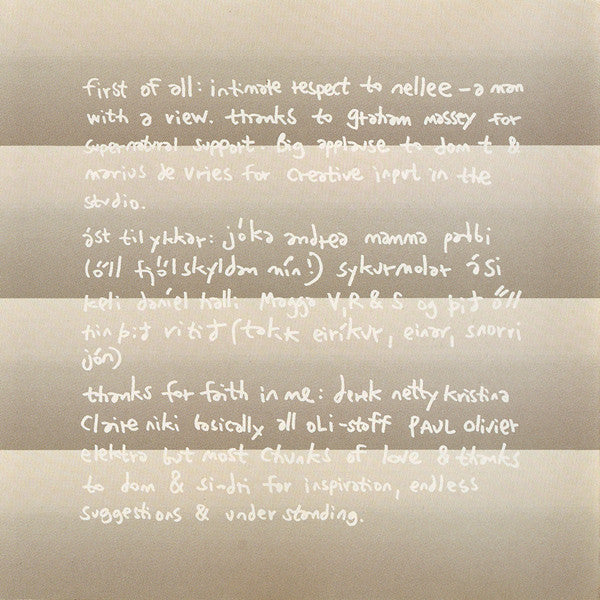 first of all: intimate respect to nellee – a man
with a view. thanks to graham massey for
supernatural support. Big applause to dom t &
marius de vries for creative input in the
studio.
ást til ykkar: jóka andrea mamma pabbi
(öll fjölskyldan mín!) sykurmolar ási
keli daníel halli Magga V, R & S og þið öll
hin þið vitið (takk eiríkur, einar, snorri
jón)
thanks for faith in me: derek netty kristina
Claire niki basically all OLi-staff PAUL olivier
elektra but most chunks of love & thanks
to dom & sindri for inspiration, endless
suggestions & understanding.